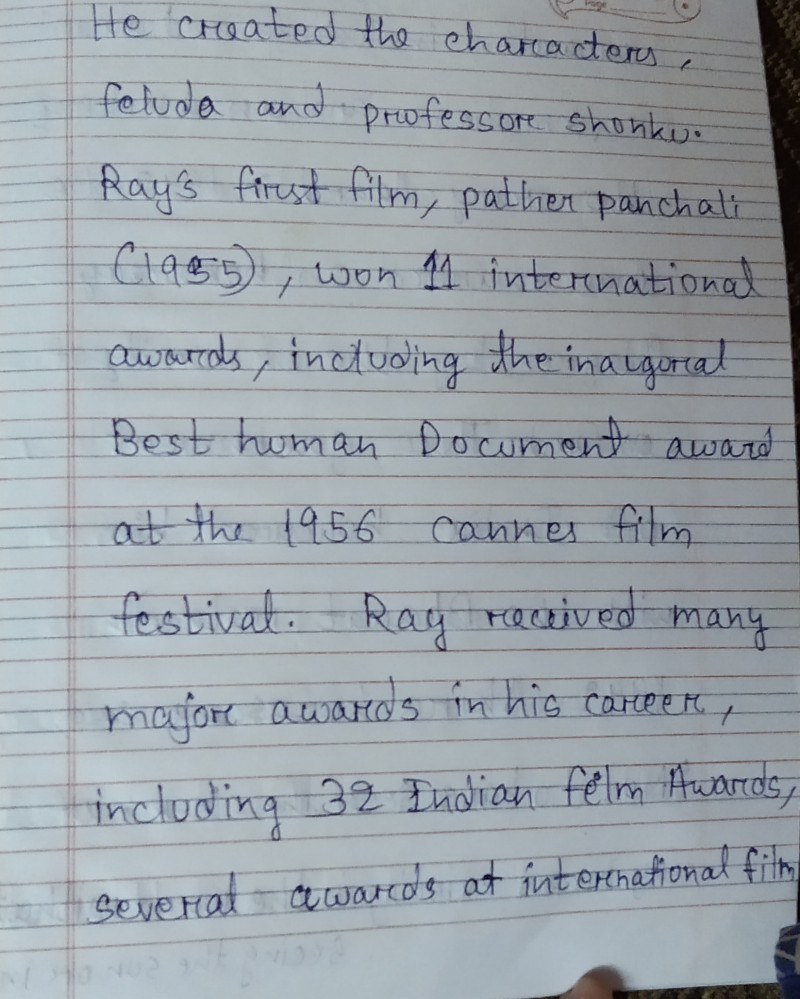 He created the characters,
feluda and professor shonku.
Ray's first film, pather panchali
(1955), won 11 international
awards, including the inaugoral
Best human Document award
at the 1956 cannes film
festival. Ray received many
major awards in his career,
including 32 Indian felm Awards,
several awards at international film